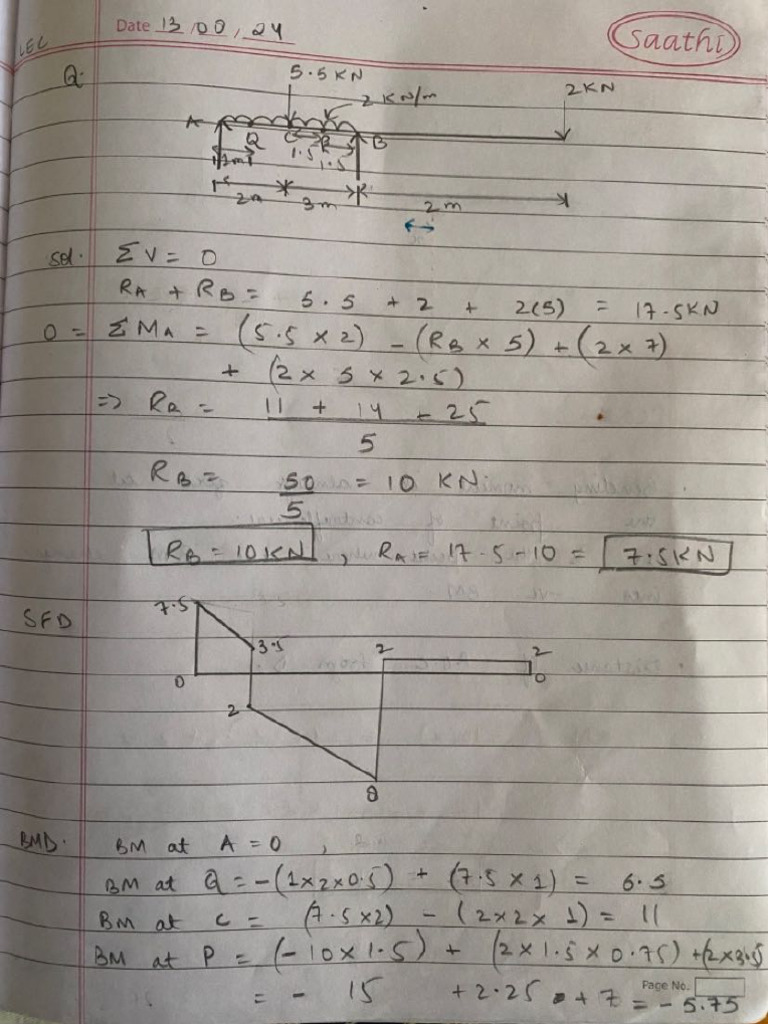 LEC
Date 13/00/24
Saathi
Q.
5.5KN
2 KN/m
2KN
A
Q
C
B
1.5
1.5
2m
3m
2m
Sol. ΣV = 0
RA + RB = 5.5 + 2 + 2(5) = 17.5KN
0 = ΣMA = (5.5 × 2) - (RB × 5) + (2 × 7)
+ (2 × 5 × 2.5)
=> RB = 11 + 14 + 25
5
RB = 50 = 10 KN
5
RB = 10KN , RA = 17.5 - 10 = 7.5KN
SFD
7.5
3.5
2
2
0
0
2
8
BMD. BM at A = 0 ,
BM at Q = -(1×2×0.5) + (7.5 × 1) = 6.5
BM at C = (7.5×2) - (2×2×1) = 11
BM at P = (-10×1.5) + (2×1.5×0.75) + (2×3.5)
= - 15 + 2.25 + 7 = - 5.75
Page No.